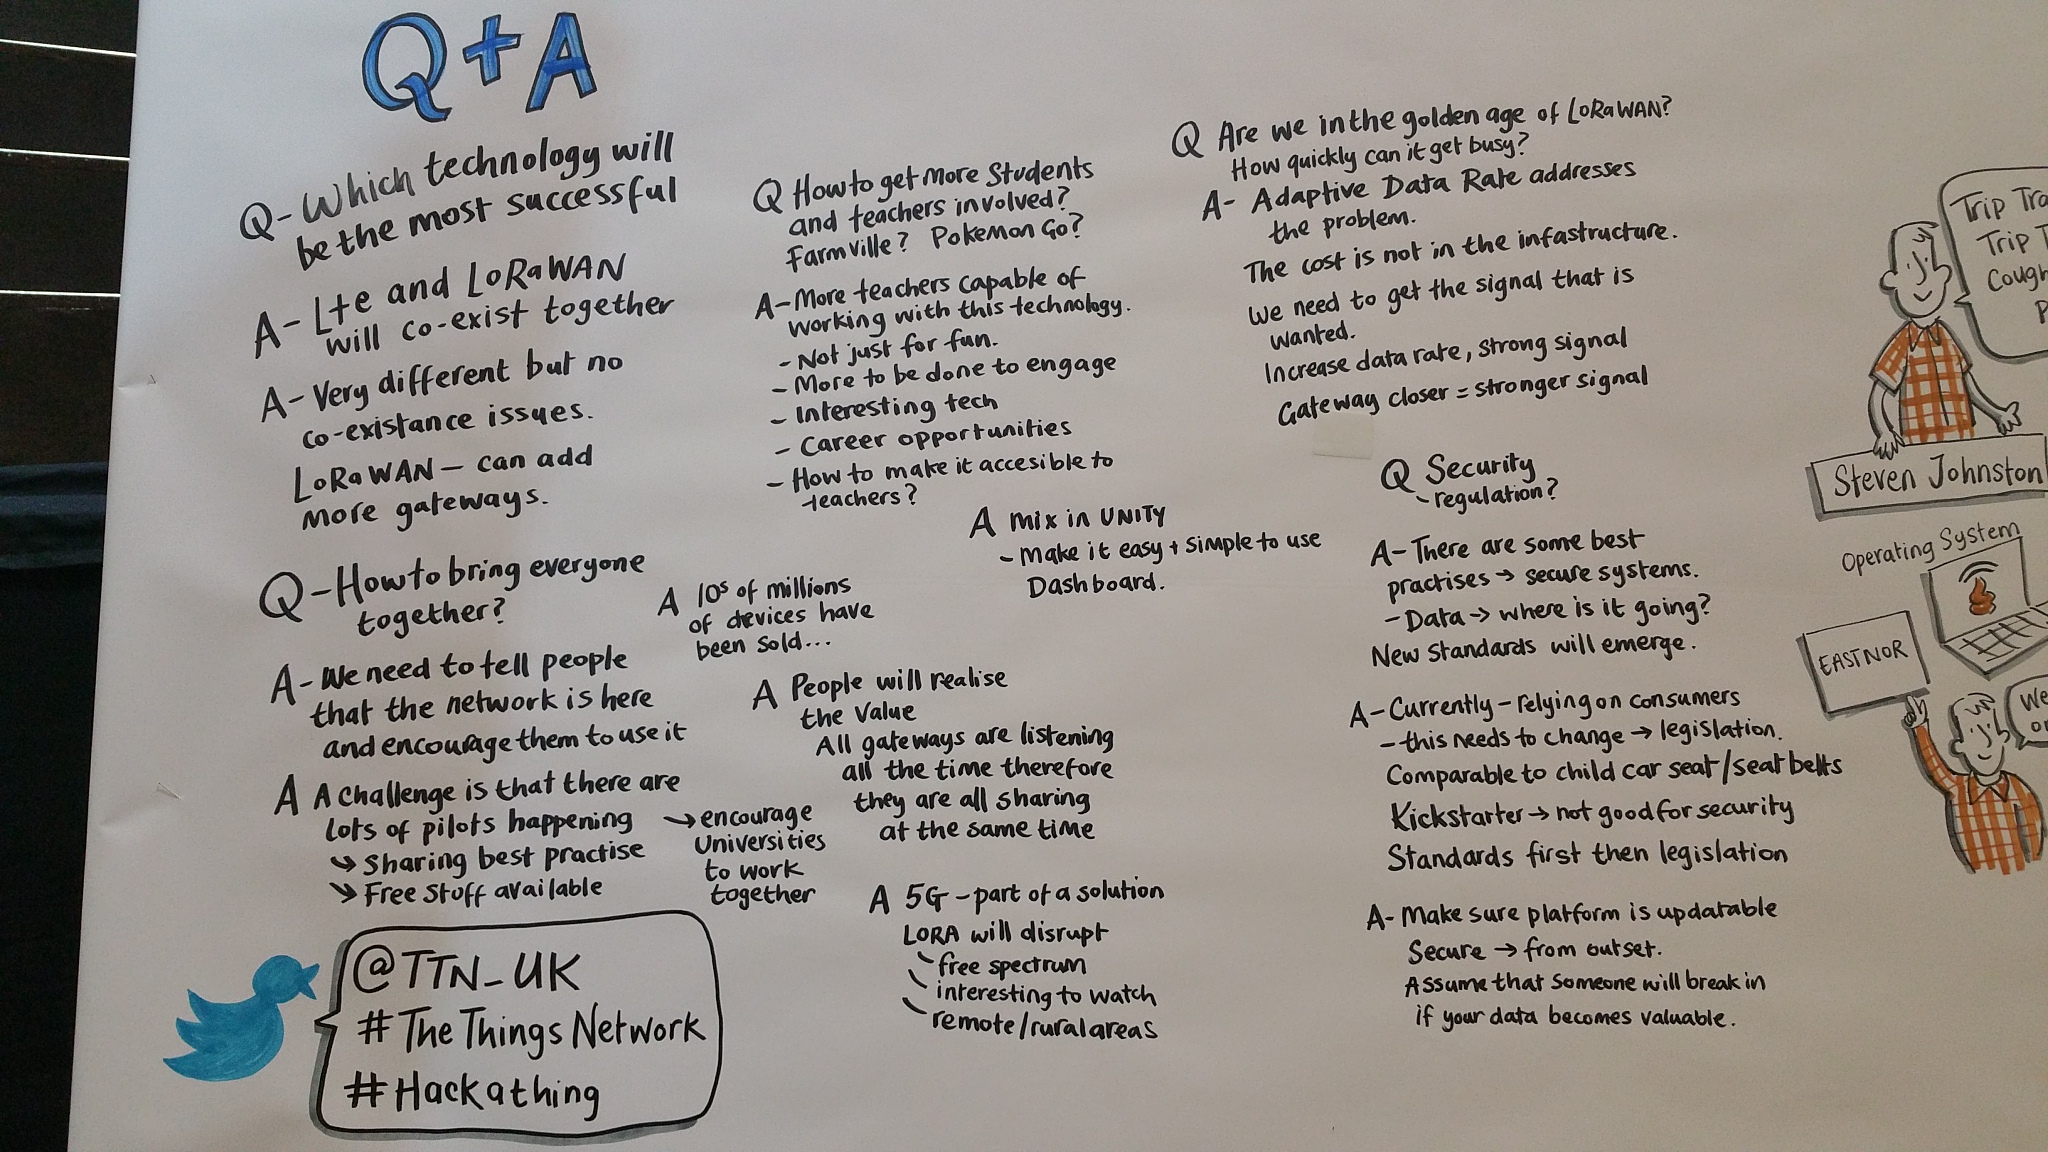 Q+A
Q- Which technology will
be the most successful
A- Lte and LoRaWAN
will co-exist together
A- Very different but no
co-existance issues.
LoRaWAN - can add
more gateways.
Q- How to bring everyone
together?
A- We need to tell people
that the network is here
and encourage them to use it
A A challenge is that there are
lots of pilots happening
↳ Sharing best practise
↳ Free stuff available
→ encourage
Universities
to work
together
@TTN_UK
#TheThingsNetwork
#Hackathing
Q How to get more Students
and teachers involved?
Farmville? Pokemon Go?
A- More teachers capable of
working with this technology.
- Not just for fun.
- More to be done to engage
- Interesting tech
- Career opportunities
- How to make it accesible to
teachers?
A mix in UNITY
- Make it easy + simple to use
Dashboard.
A 10s of millions
of devices have
been sold...
A People will realise
the value
All gateways are listening
all the time therefore
they are all sharing
at the same time
A 5G - part of a solution
LORA will disrupt
free spectrum
interesting to watch
remote/rural areas
Q Are we in the golden age of LoRaWAN?
How quickly can it get busy?
A- Adaptive Data Rate addresses
the problem.
The cost is not in the infastructure.
We need to get the signal that is
wanted.
Increase data rate, strong signal
Gateway closer = stronger signal
Q Security
- regulation?
A- There are some best
practises → secure systems.
- Data → where is it going?
New Standards will emerge.
A- Currently - relying on consumers
- this needs to change → legislation.
Comparable to child car seat/seat belts
Kickstarter → not good for security
Standards first then legislation
A- Make sure platform is updatable
Secure → from outset.
Assume that someone will break in
if your data becomes valuable.
Trip
Trip
Cough
Steven Johnston
Operating System
EASTNOR
We